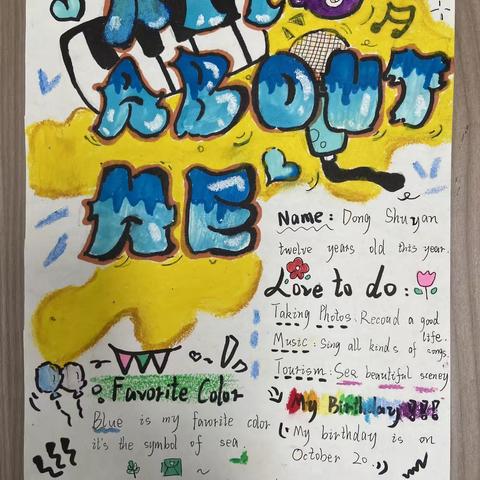 ALL
ABOUT
ME
Name: Dong Shuyan
twelve years old this year.
Love to do:
Taking Photos: Recoud a good
life.
Music: sing all kinds of songs.
Tourism: Sea beautiful sceney
Favorite Color
Blue is my favorite color
it's the symbol of sea.
My Birthday???
My birthday is on
October 20.